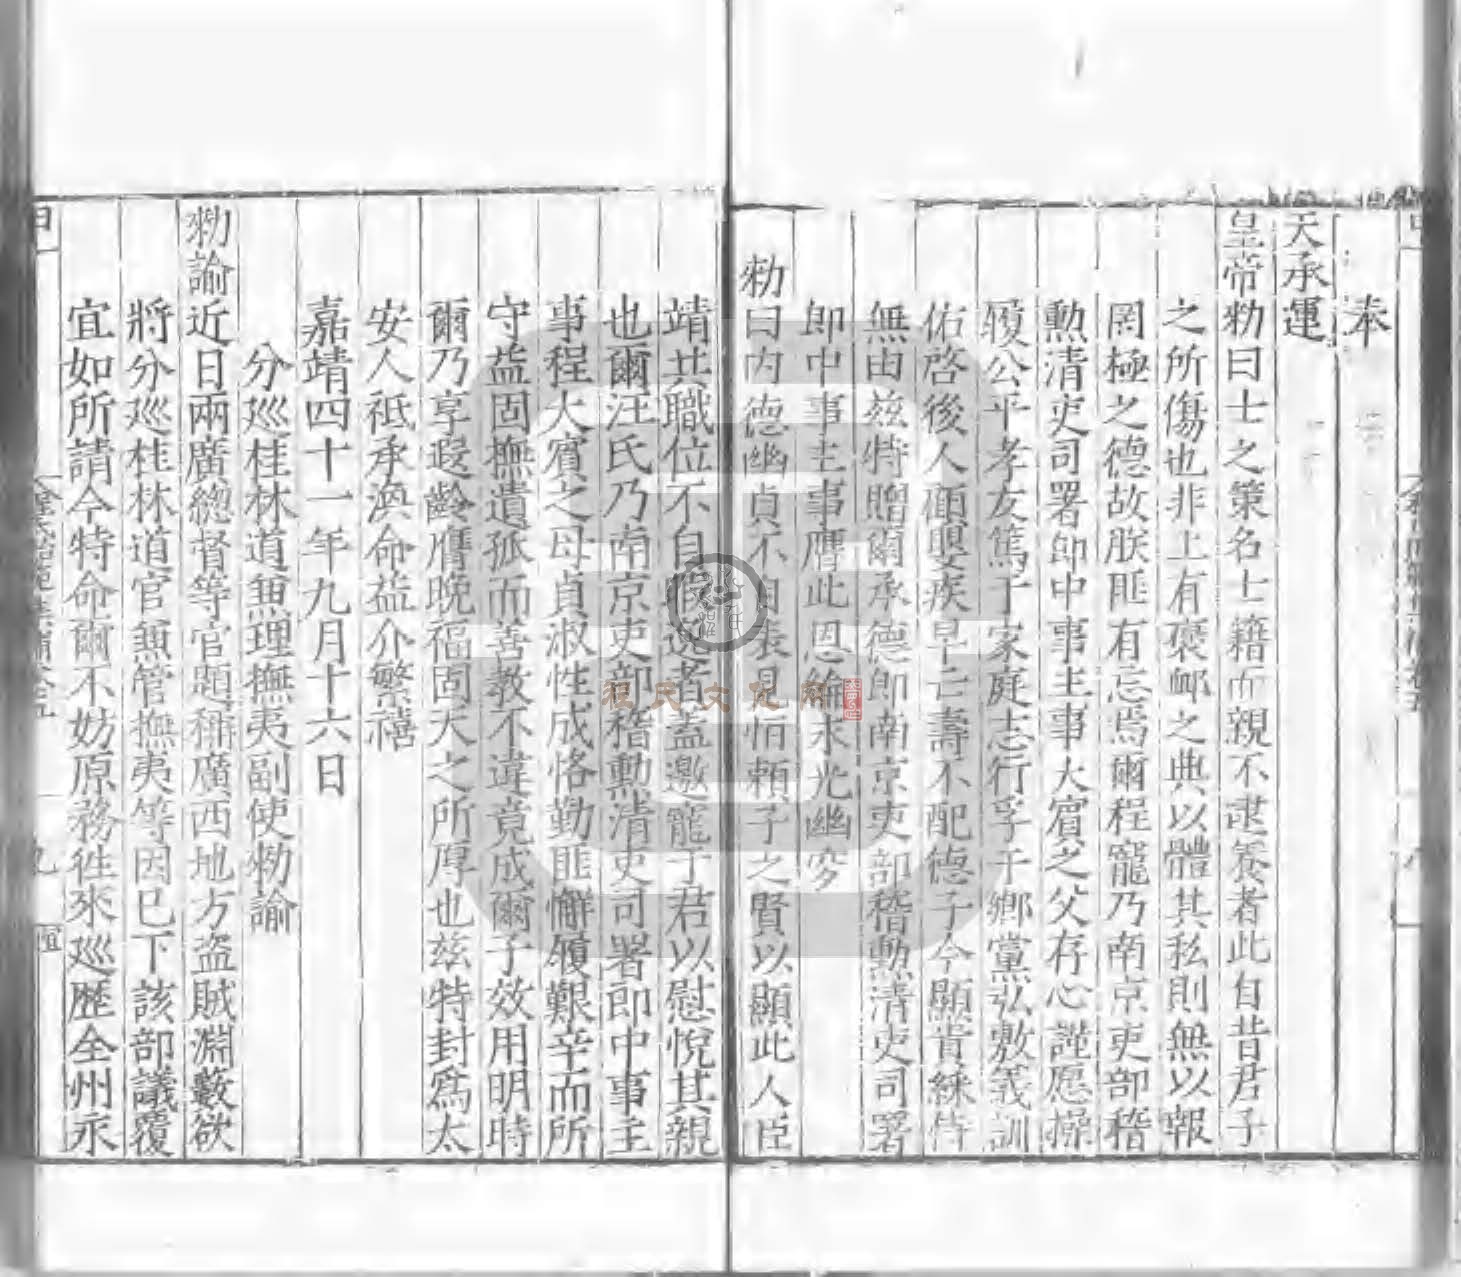 奉
天承運
皇帝勑曰士之策名士籍而親不逮養者此自昔君子
之所傷也非上有褒䘏之典以體其私則無以報
罔極之德故朕匪有忘焉爾程寵乃南京吏部稽
勲清吏司署郎中事主事大賓之父存心謹愿操
履公平孝友篤于家庭志行孚于鄉黨弘敷義訓
佑啓後人顧嬰疾早亡壽不配德子今顯貴綵侍
無由兹特贈爾承德郎南京吏部稽勲清吏司署
郎中事主事膺此恩綸永光幽穸
勑曰内德幽貞不自表見怙賴子之賢以顯此人臣
靖共職位不自暇逸者蓋邀寵于君以慰悅其親
也爾汪氏乃南京吏部稽勲清吏司署郎中事主
事程大賓之母貞淑性成恪勤匪懈履艱辛而所
守益固撫遺孤而善教不違竟成爾子效用明時
爾乃享遐齡膺晚福固天之所厚也兹特封爲太
安人祗承渙命益介繁禧
嘉靖四十一年九月十六日
分廵桂林道兼理撫夷副使勑諭
勑諭近日兩廣總督等官題稱廣西地方盗賊淵藪欲
將分廵桂林道官兼管撫夷等因已下該部議覆
宜如所請今特命爾不妨原務徃來廵歷全州永
程氏文化网